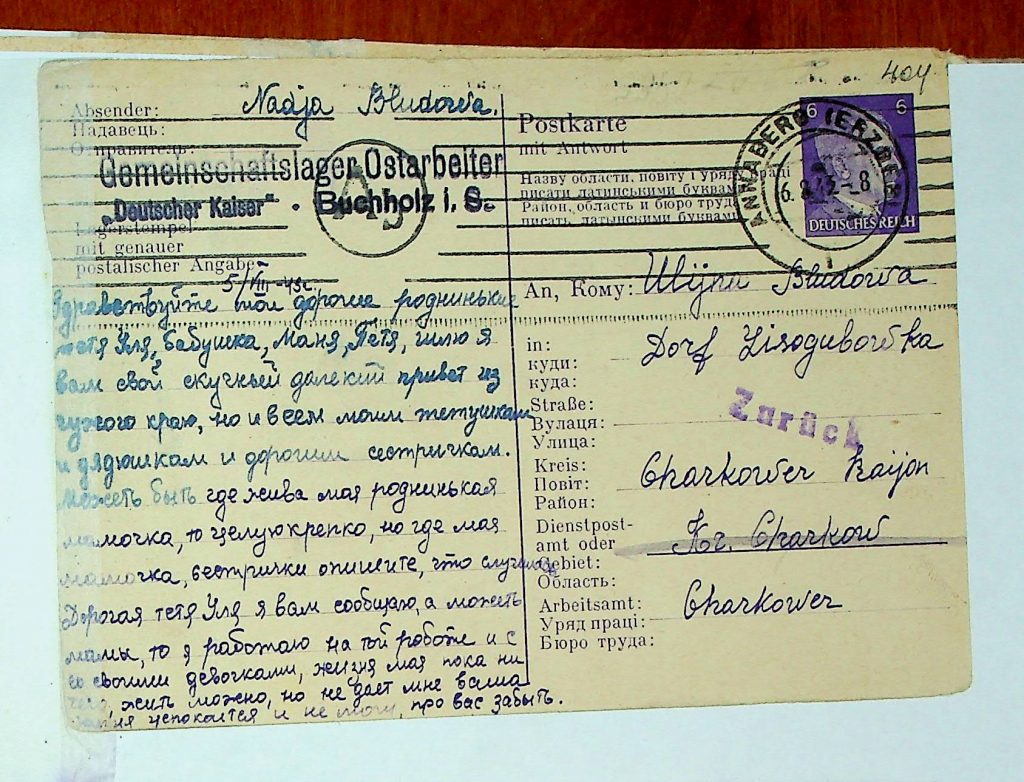 404
Absender: Nadja Bludowa.
Надавець:
Gemeinschaftslager Ostarbeiter
„Deutscher Kaiser“. Buchholz i. S.
Lagerstempel
mit genauer
postalischer Angabe
5/VIII-43г.
Здравствуйте мои дорогие роднинькие
тётя Уля, бабушка, Маня, Петя, шлю я
вам свой скучный далекий привет из
чужого краю, но и всем моим тётушкам
и дядюшкам и дорогим сестричкам.
Может быть где жива мая роднинькая
мамочка, то целую крепко, но где мая
мамочка, сестрички опишите, что случилось
Дорогая тетя Уля я вам сообщаю, а можеть
мамы, то я работаю на той роботе и с
своими девочками, жизня мая пока ни
чего, жить можно, но не дает мне ваша
успокаится и не могу, про вас забыть.
Postkarte
mit Antwort
Назву области, повіту і уряду праці
писати латинськими буквами
Район, область и бюро труда
писать латынскими буквами
6 6
DEUTSCHES REICH
ANNABERG (ERZGEB)
6.8.43-8
An, Кому: Ulijnu Bludowa
in: Dorf Lisogubowka
куди:
куда:
Zurück
Straße:
Вулаця:
Улица:
Kreis: Charkower Raijon
Повіт:
Район:
Dienstpost-
amt oder Kr. Charkow
Gebiet:
Область:
Arbeitsamt: Charkower
Уряд праці:
Бюро труда: